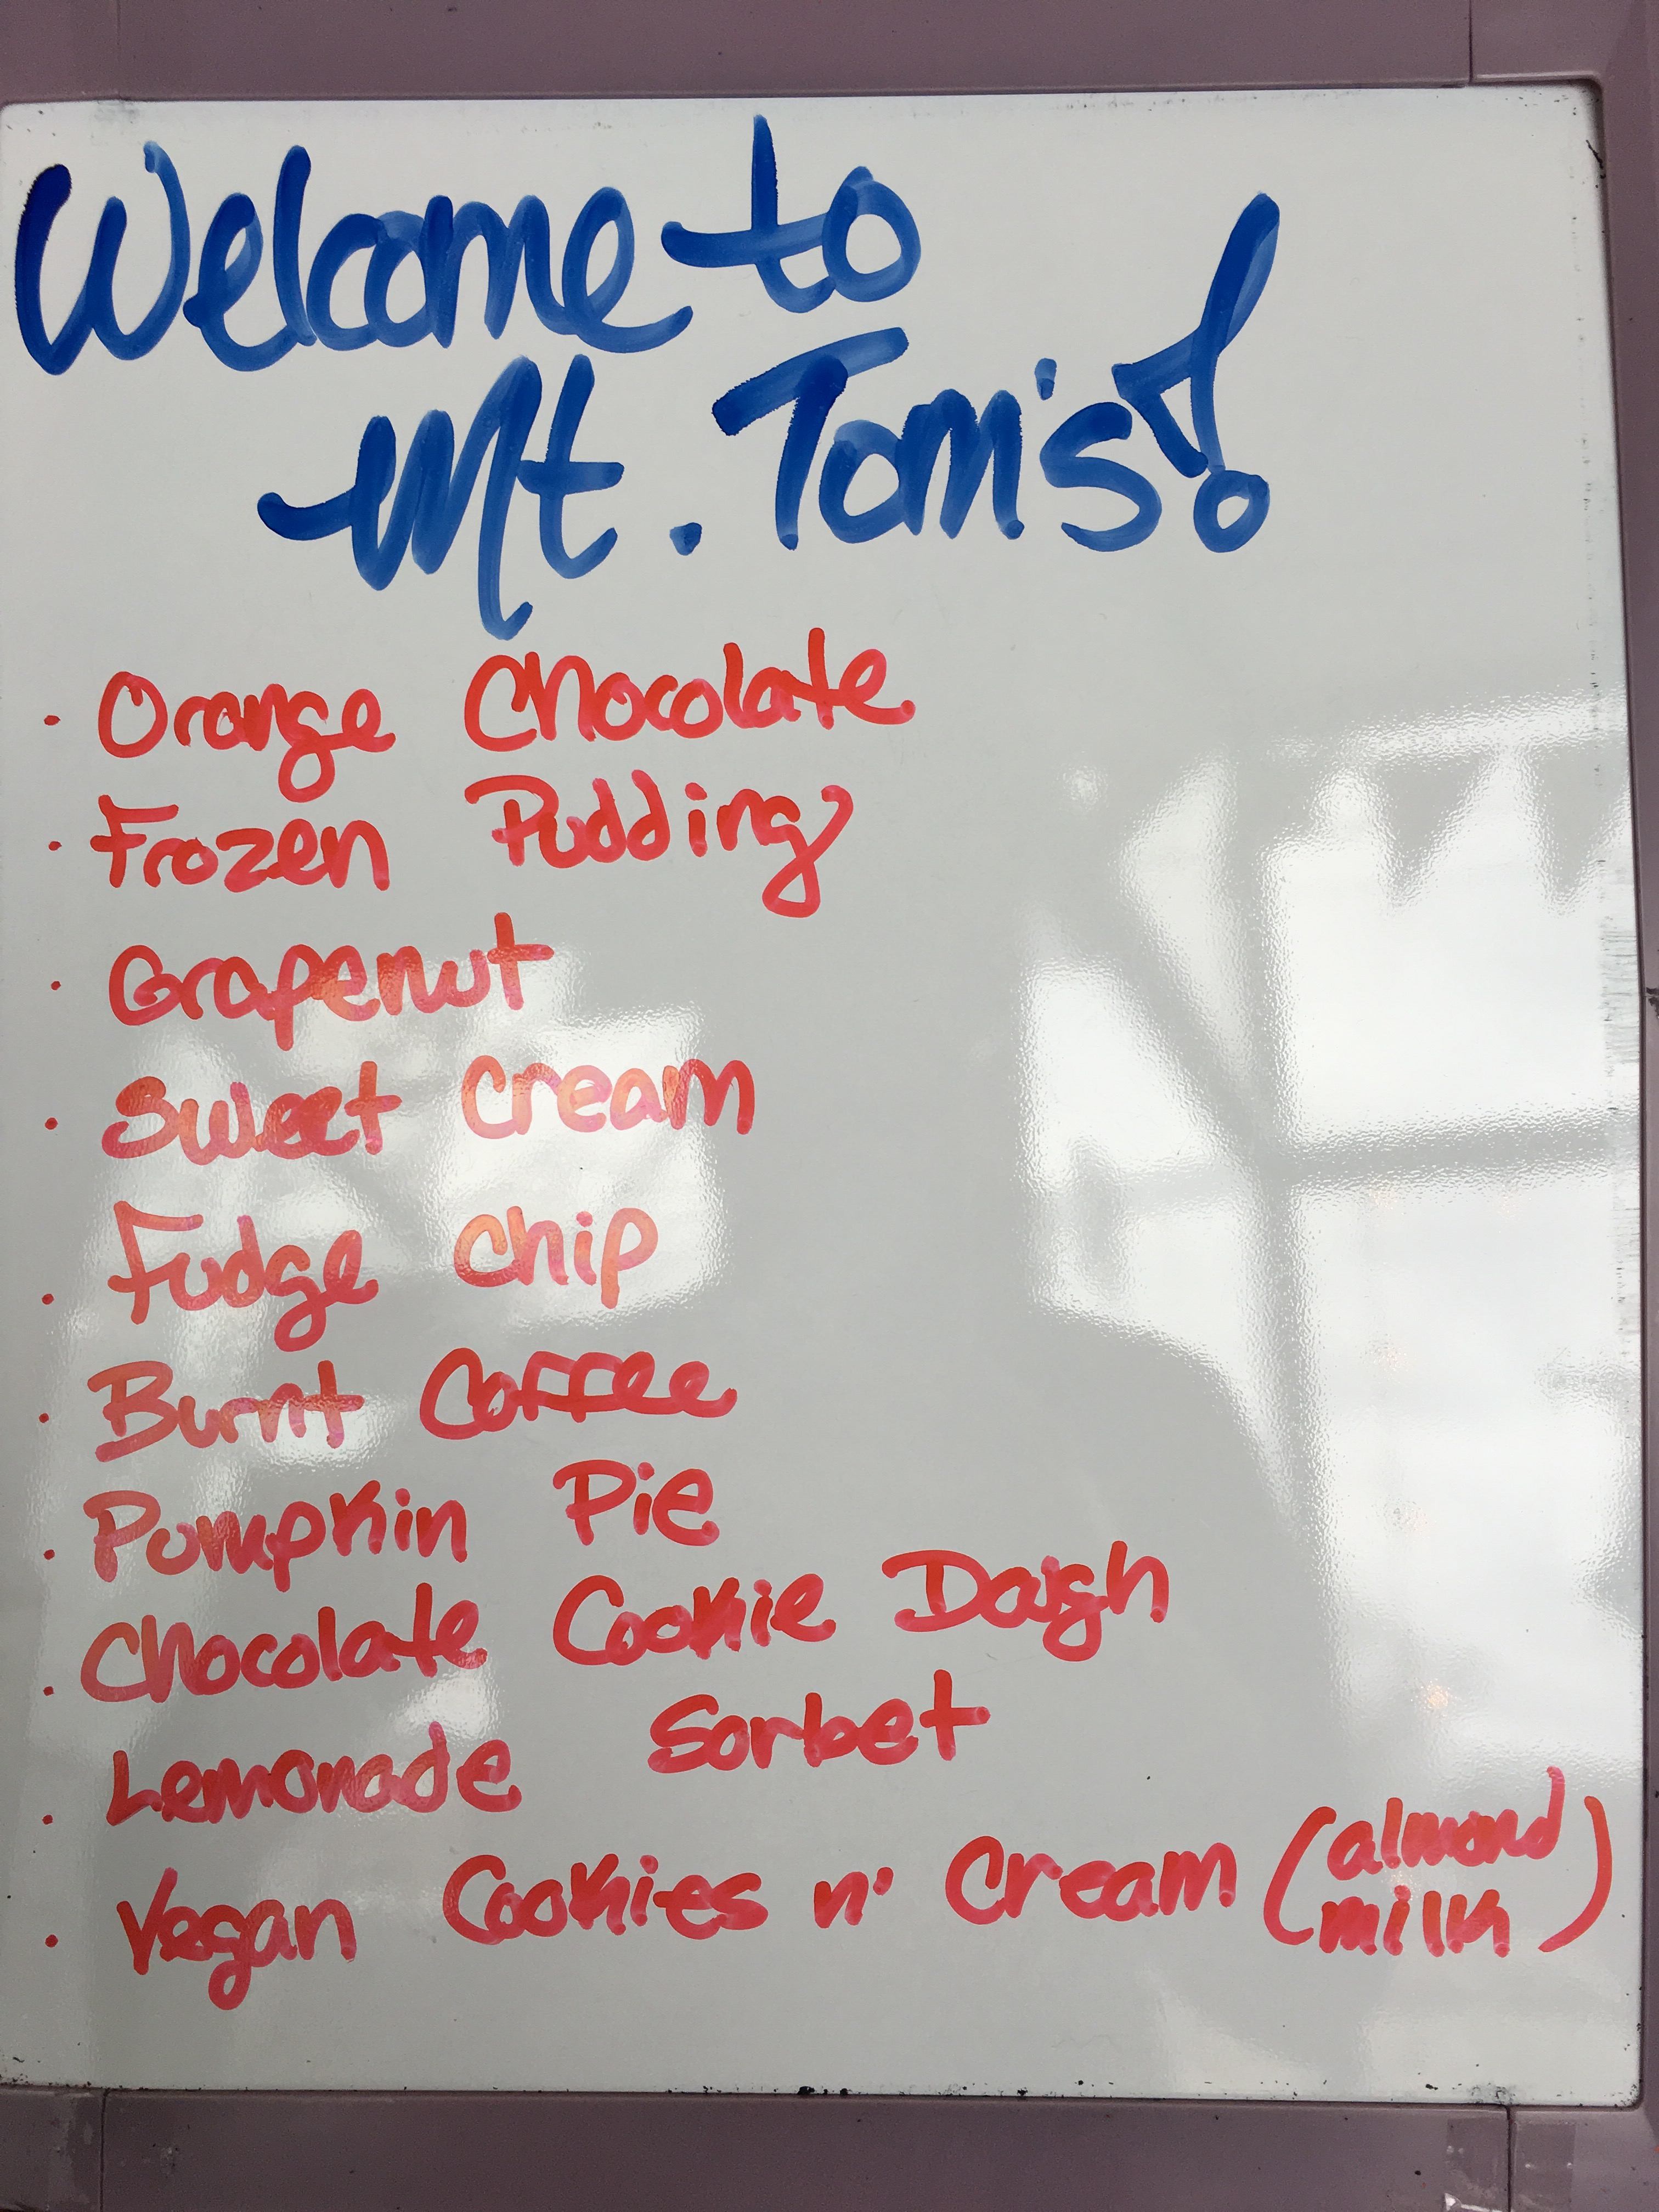 Welcome to
Mt. Tom's!
· Orange Chocolate
· Frozen Pudding
· Grapenut
· Sweet Cream
· Fudge Chip
· Burnt Coffee
· Pumpkin Pie
· Chocolate Cookie Dough
· Lemonade Sorbet
· Vegan Cookies n' Cream (almond
milk)